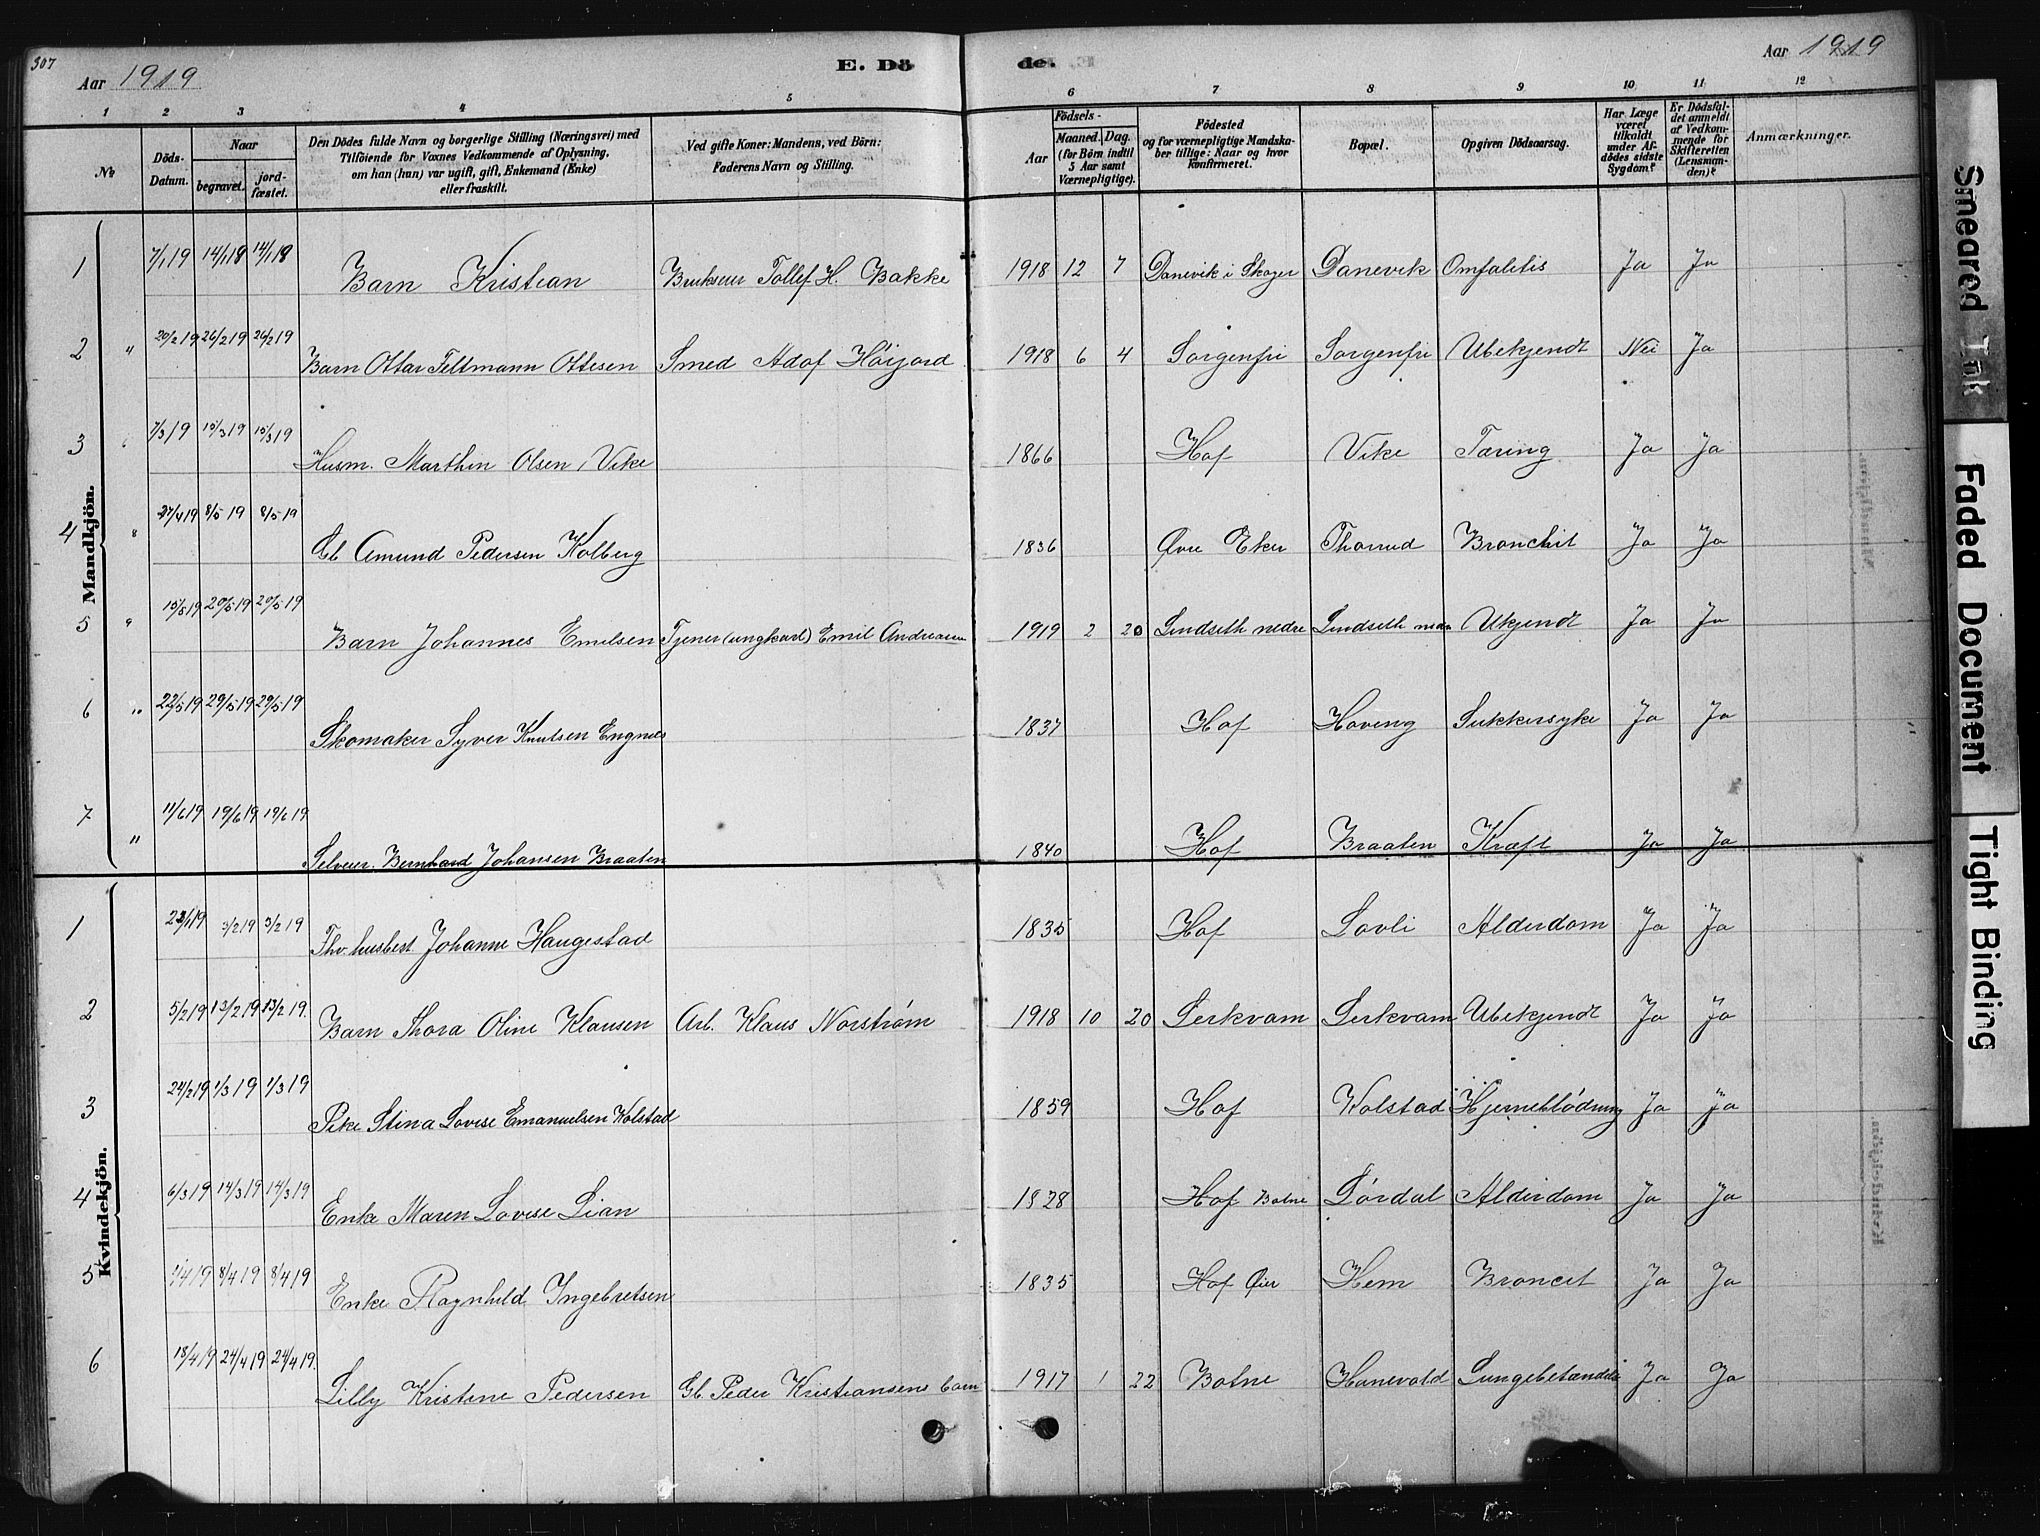 307
Aar 1919
E. Dö
de.
Aar 1919
1 2 3 4 5 6 7 8 9 10 11 12
№
Döds-Datum.
Naar
begravet.
jord-fæstet.
Den Dödes fulde Navn og borgerlige Stilling (Næringsvei) med
Tilföiende for Voxnes Vedkommende af Oplysning,
om han (hun) var ugift, gift, Enkemand (Enke)
eller fraskilt.
Ved gifte Koner: Mandens, ved Börn:
Faderens Navn og Stilling.
Födsels-
Aar
Maaned. Dag.
(for Börn indtil
5 Aar samt
Værnepligtige).
Födested
og for værnepligtige Mandska-
ber tillige: Naar og hvor
konfirmeret.
Bopæl.
Opgiven Dödsaarsag.
Har Læge
været
tilkaldt
under Af-
dödes sidste
Sygdom?
Er Dödsfal-
det anmeldt
af Vedkom-
mende for
Skifteretten
(Lensman-
den)?
Anmærkninger.
Mandkjön.
1 7/1 19 14/1 19 14/1 19 Barn Kristian Brukseier Tollef H. Bakke 1918 12 7 Danevik i Skoger Danevik Omfalitis Ja Ja
2 " 20/2 19 26/2 19 26/2 19 Barn Ottar Teltmann Ottesen Smed Adof Høijord 1918 6 4 Sorgenfri Sorgenfri Ubekjendt Nei Ja
3 " 7/3 19 15/3 19 15/3 19 Husm. Marthin Olsen Vike 1866 Hof Vike Tæring Ja Ja
4 " 27/4 19 8/5 19 8/5 19 Gb Amund Pedersen Kolberg 1836 Øvre Eker Thorrud Bronchit Ja Ja
5 " 15/5 19 20/5 19 20/5 19 Barn Johannes Emilsen Tjener (ungkarl) Emil Andreasen 1919 2 20 Lindseth nedre Lindseth nedre Ukjendt Ja Ja
6 " 22/5 19 29/5 19 29/5 19 Skomaker Syver Knutsen Engnes 1837 Hof Hoveng Sukkersyke Ja Ja
7 " 11/6 19 19/6 19 19/6 19 Selveier. Bernhard Johansen Braaten 1840 Hof Braaten Kræft Ja Ja
Kvindekjön.
1 22/1 19 3/2 19 3/2 19 Fhv. husbest. Johanne Haugestad 1835 Hof Lovli Alderdom Ja Ja
2 5/2 19 13/2 19 13/2 19. Barn Thora Oline Klausen Arb. Klaus Norstrøm 1918 10 20 Serkvam Serkvam Ubekjendt Ja Ja
3 24/2 19 1/3 19 1/3 19 Pike Stina Lovise Emanuelsen Kolstad 1859 Hof Kolstad Hjerneblödning Ja Ja
4 6/3 19 14/3 19 14/3 19 Enke Maren Lovise Lian 1828 Hof Botne Lørdal Alderdom Ja Ja
5 1/4 19 8/4 19 8/4 19 Enke Ragnhild Ingebretsen 1835 Hof Øier Hem Broncit Ja Ja
6 18/4 19 24/4 19 24/4 19. Lilly Kristine Pedersen Gb. Peder Kristiansens barn 1917 1 22 Botne Hanevold Lungebetændelse Ja Ja
Smeared Ink
Faded Document
Tight Binding